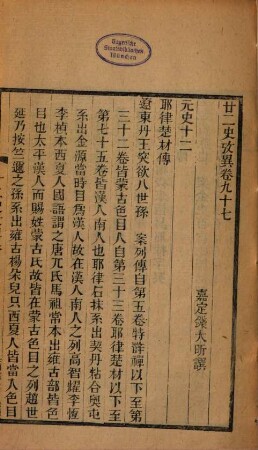 Bayerische
Staatsbibliothek
München
廿二史攷異卷九十七
嘉定錢大昕撰
元史十二
耶律楚材傳
遼東丹王突欲八世孫 案列傳自第五卷特薛禪以下至第
三十二卷皆蒙古色目人自第三十三卷耶律楚材以下至
第七十五卷皆漢人南人也耶律石抹系出契丹粘合奥屯
系出金源當時目爲漢人故在漢人南人之列高智耀李恆
李楨本西夏人國語謂之唐兀氏馬祖常本出雍古部皆色
目也太平漢人而賜姓蒙古氏故皆在蒙古色目之列趙世
延乃按竺邇之孫系出雍古楊朶兒只西夏人皆當入色目